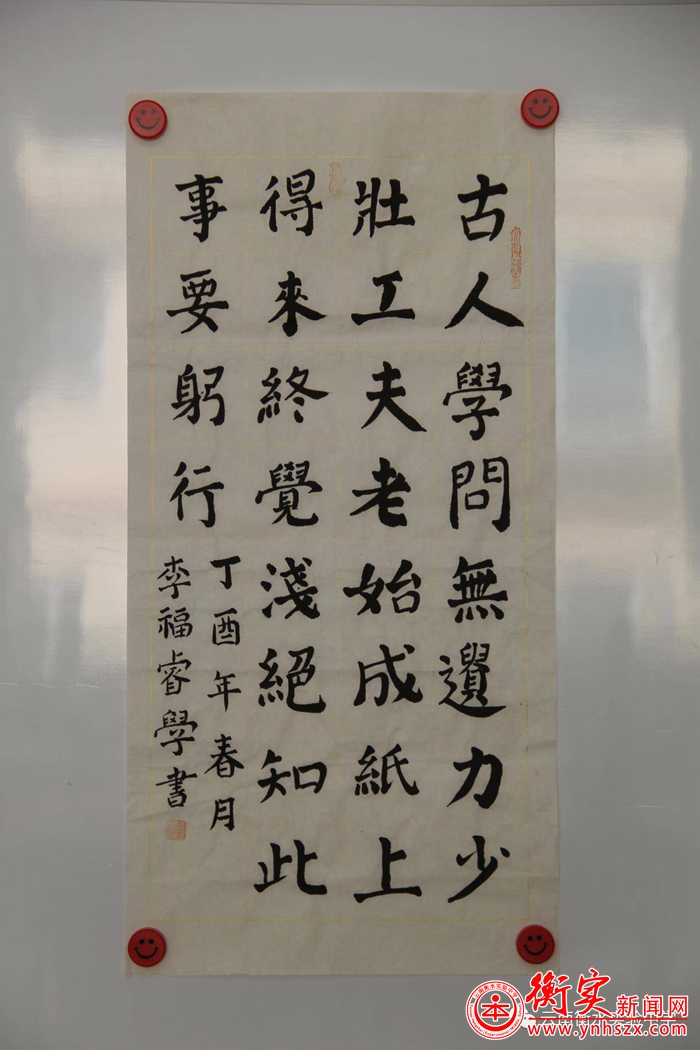 古人學問無遺力少
壯工夫老始成紙上
得來終覺淺絕知此
事要躬行
丁酉年春月
李福睿學書
衡实新闻网
www.ynhszx.com